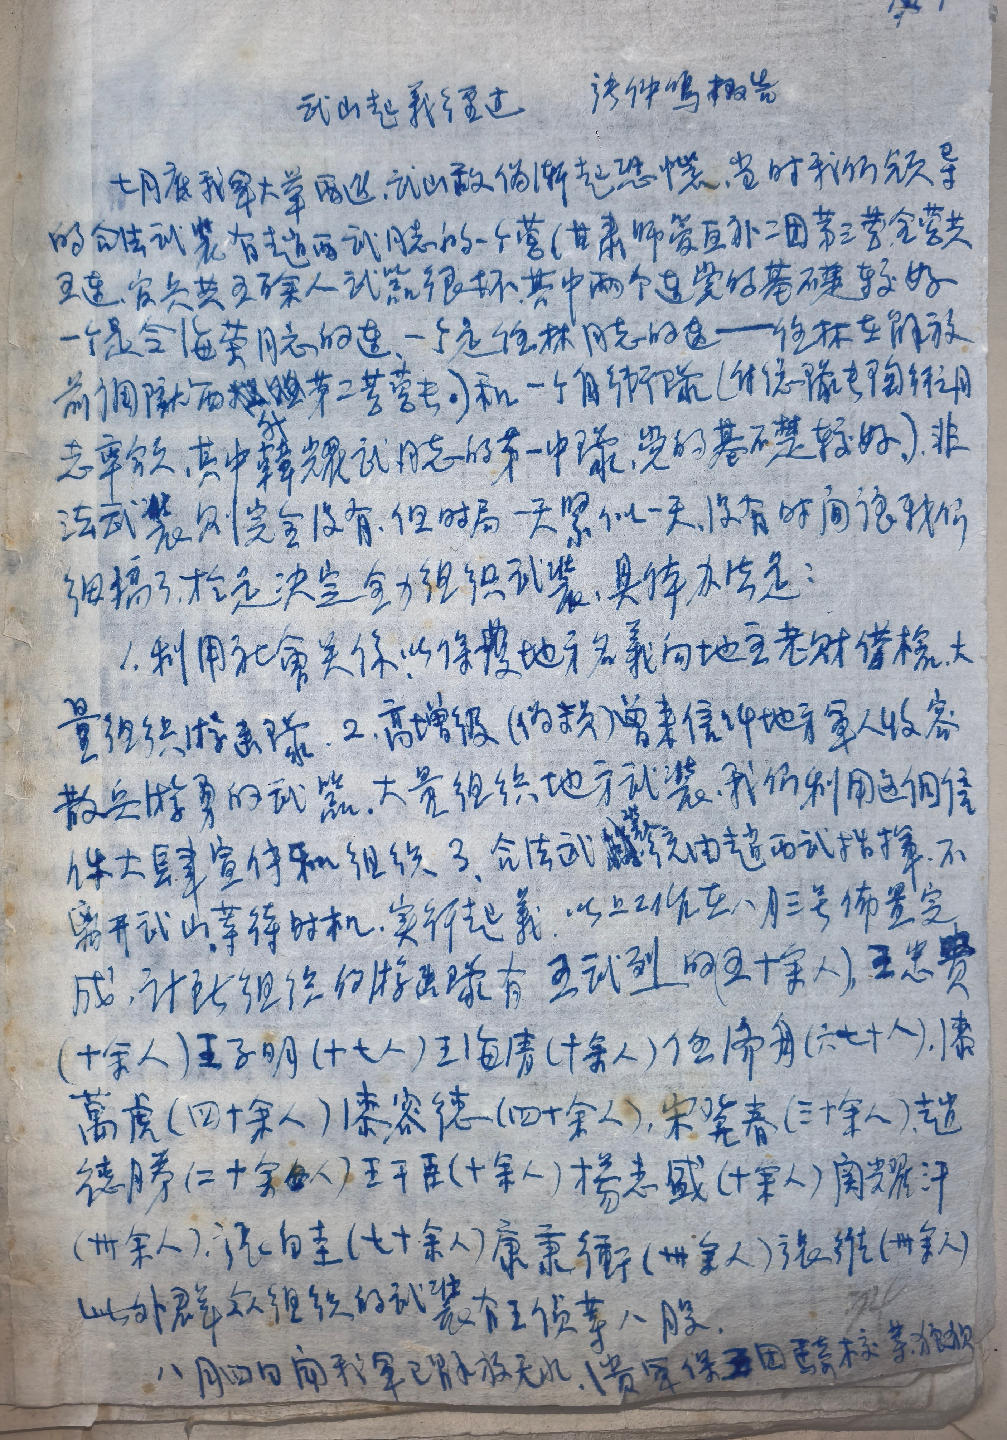 武山起義经过 仲鳴报告
七月底我军大军西进,武山敌伪渐起恐慌,当时我们领导
的合法武装有赵西武同志的一个营(甘肃师管区补二团第三营,全营共
五连,官兵共五百余人武器很坏其中两个连党的基礎较好
一个是令海荣同志的连、一个是任林同志的连——任林在解放
前调陇西第二营营长。)和一个自衛隊(付总隊长陶
志率领,其中韓耀武同志的第一中隊,党的基礎较好。),非
法武装则完全没有,但时局一天緊似一天,没有时间讓我们
细搞了,於是决定全力组织武装,具体办法是:
1.利用社會关係,以保護地方名義向地主老财借槍,大
量组织游击隊.2.高增级(伪)曾来信叫地方軍人收容
散兵游勇的武器,大量组织地方武装,我们利用这個信
件大肆宣传和组织 3、合法武装统由趙西武指揮,不
离开武山,等待时机,实行起義.以上工作在八月三号佈置完
成,计新组织的游击隊有王武烈的(五十余人),王忠貴
(十余人)王子明(十七人)王海清(十余人)任濟舟(六七十人),漆
萬虎(四十余人)漆容德(四十余人),宋凳春(三十余人),趙
德勝(二十余人)王干臣(十余人)楊志盛(十余人)闫耀汗
(卅余人),張自圭(七十余人)康秉衡(卅余人)張維(卅余人)
此外群众组织的武装有王侦等八股,
八月四日闻我军已解放天水,(贵军保五团等狼狈